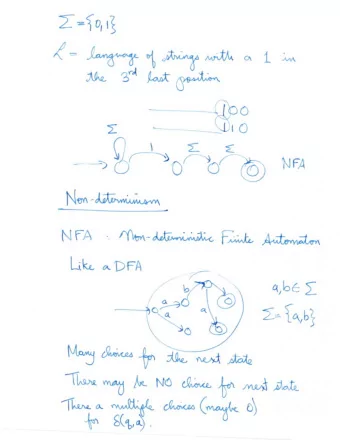 Σ = {0,1}
L = language of strings with a 1 in
the 3rd last position
100
110
Σ 1 Σ Σ
NFA
Non-determinism
NFA : Non-deterministic Finite Automaton
Like a DFA
a b a a
a,b ∈ Σ
Σ = {a,b}
Many choices for the next state
There may be NO choice for next state
There a multiple choices (maybe 0)
for δ(q,a).